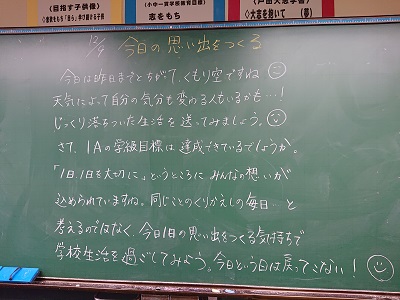 (目指す子供像)
(小中一貫教育目標)
志をもち
(戸田大志学習)
◇大志を抱いて (夢)
今日の思い出をつくる
今日は昨日までとちがって、くもり空ですね
天気によって自分の気分も変わる人もいるかも…!
じっくり落ちついた生活を送ってみましょう。
さて、1Aの学級目標は達成できているでしょうか。
「1日、1日を大切に」というところにみんなの想いが
込められていますね。同じことのくりかえしの毎日…と
考えるのではなく、今日1日の思い出をつくる気持ちで
学校生活を過ごしてみよう。今日という日は戻ってこない!